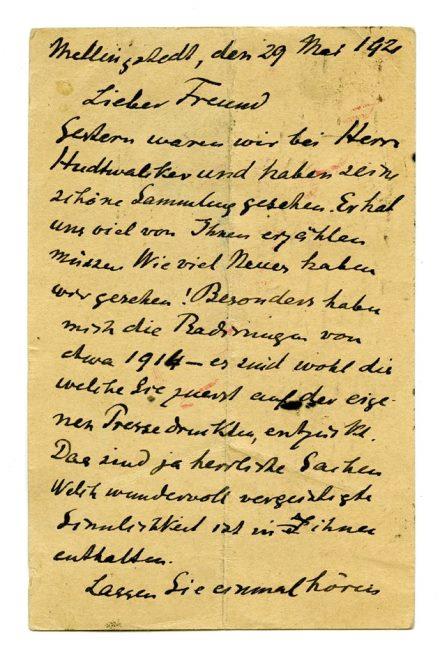 Mellingstedt, den 29 Mai 192
Lieber Freund
Gestern waren wir bei Herrn
Hudtwalker und haben seine
schöne Sammlung gesehen. Er hat
uns viel von Ihnen erzählen
müssen Wie viel Neues haben
wir gesehen! Besonders haben
mich die Radirungen von
etwa 1914 – es sind wohl die
welche Sie zuerst auf der eige-
nen Presse druckten, entzückt.
Das sind ja herrliche Sachen
Welch wundervoll vergeistigte
Sinnlichkeit ist in Ihnen
enthalten.
Lassen Sie einmal hören